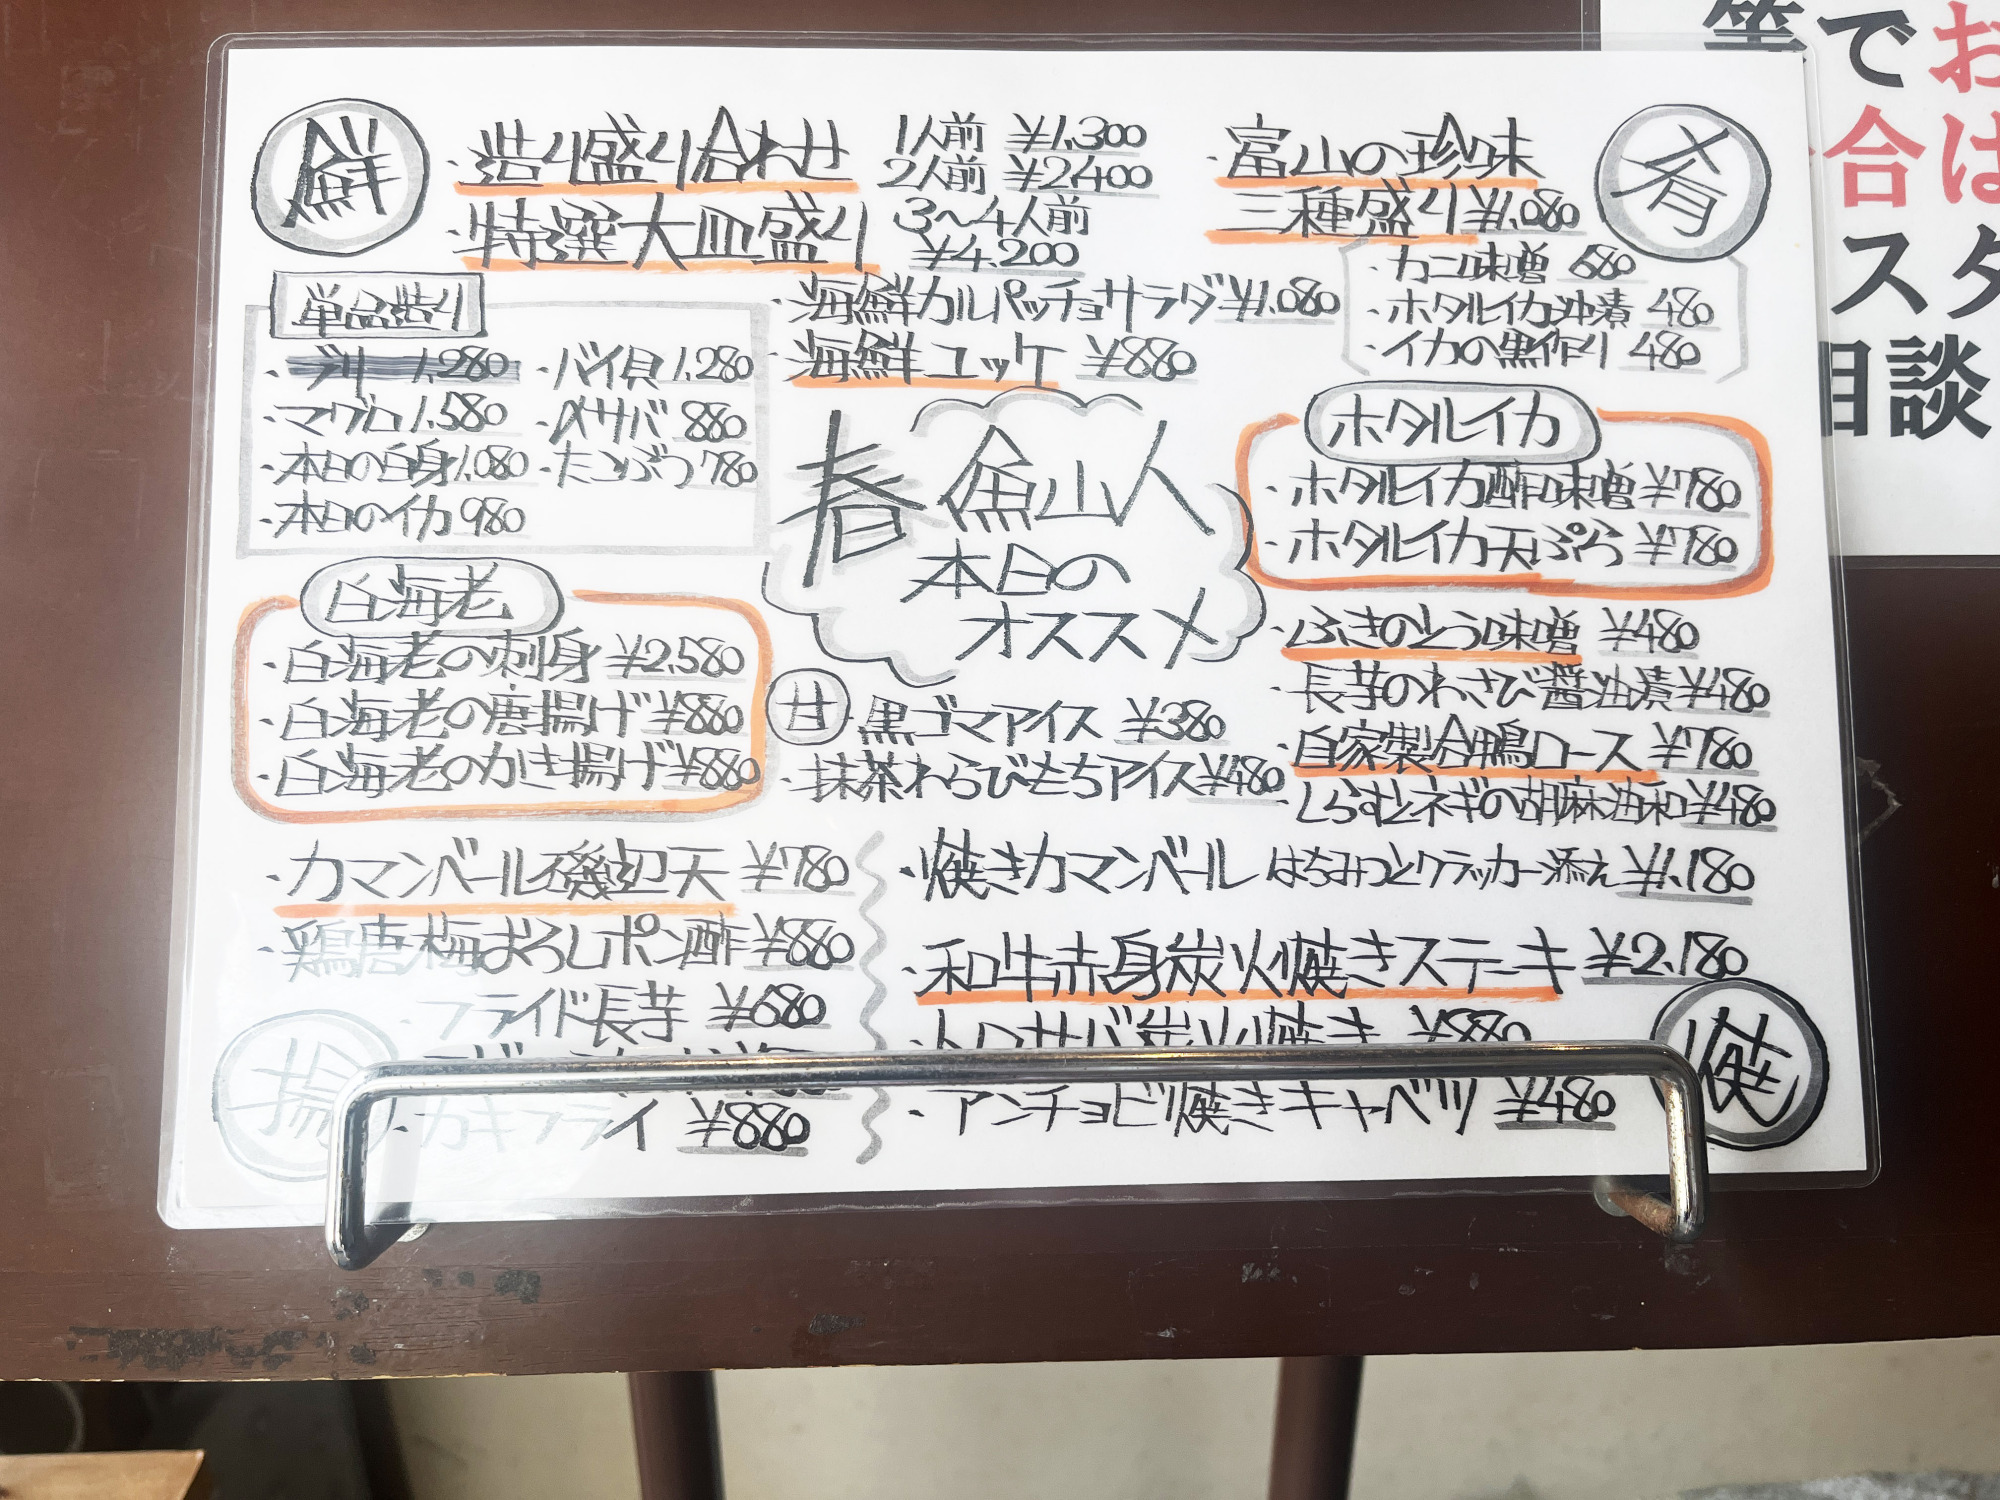 鮮
・造り盛り合わせ
1人前 ¥1,300
2人前 ¥2,400
・特選大皿盛り
3〜4人前
¥4,200
単品造り
・ブリ 1,280
・マグロ 1,580
・本日の白身 1,080
・本日のイカ 980
・バイ貝 1,280
・〆サバ 880
・たこぶつ 780
・海鮮カルパッチョサラダ ¥1,080
・海鮮ユッケ ¥880
肴
・富山の珍味
三種盛り ¥1,080
・カニ味噌 680
・ホタルイカ沖漬 480
・イカの黒作り 480
春 魚山人
本日の
オススメ
ホタルイカ
・ホタルイカ酢味噌 ¥780
・ホタルイカ天ぷら ¥780
・ふきのとう味噌 ¥480
・長芋のわさび醤油漬 ¥480
・自家製合鴨ロース ¥780
・しらすとネギの胡麻油和 ¥480
白海老
・白海老の刺身 ¥2,580
・白海老の唐揚げ ¥880
・白海老のかき揚げ ¥880
甘
・黒ゴマアイス ¥380
・抹茶わらびもちアイス ¥480
・カマンベール磯辺天 ¥780
・鶏唐 梅おろしポン酢 ¥880
・フライド長芋 ¥680
・カキフライ ¥880
揚
・焼きカマンベール はちみつとクラッカー添え ¥1,180
・和牛赤身炭火焼きステーキ ¥2,180
・トロサバ炭火焼き ¥880
・アンチョビ焼きキャベツ ¥480
焼
等でお
合は
スタ
相談